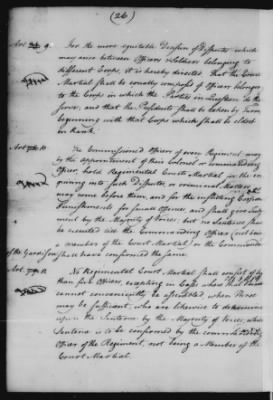 (26)
Art. 9. For the more equitable Decision of Disputes which
may arise between Officers & Soldiers belonging to
different Corps, it is hereby directed that the Courts
Martial shall be equally composed of Officers belonging
to the Corps in which the Parties in Question do then
serve, and that the Presidents shall be taken by Turns
beginning with that Corps which shall be eldest
in Rank.
Art. 10 The Commissioned Officers of every Regiment may
by the appointment of their Colonel or commanding
Officer, hold Regimental Courts Martial for the en
quiring into such Disputes or criminal Matters as
may come before them, and for the inflicting Corporal
Punishments for small Offences, and shall give Judg
ment by the Majority of Voices; but no Sentence shall
be executed till the Commanding Officer (not being
a member of the Court Martial) or the Commandant
of the Garrison shall have confirmed the same.
Art. 11 No Regimental Court Martial shall consist of less
than five Officers, excepting in Cases where that Number
cannot conveniently be assembled, when Three
may be sufficient, who are likewise to determine
upon the Sentence by the Majority of Voices, which
Sentence is to be confirmed by the commanding
Officer of the Regiment, not being a Member of the
Court Martial.